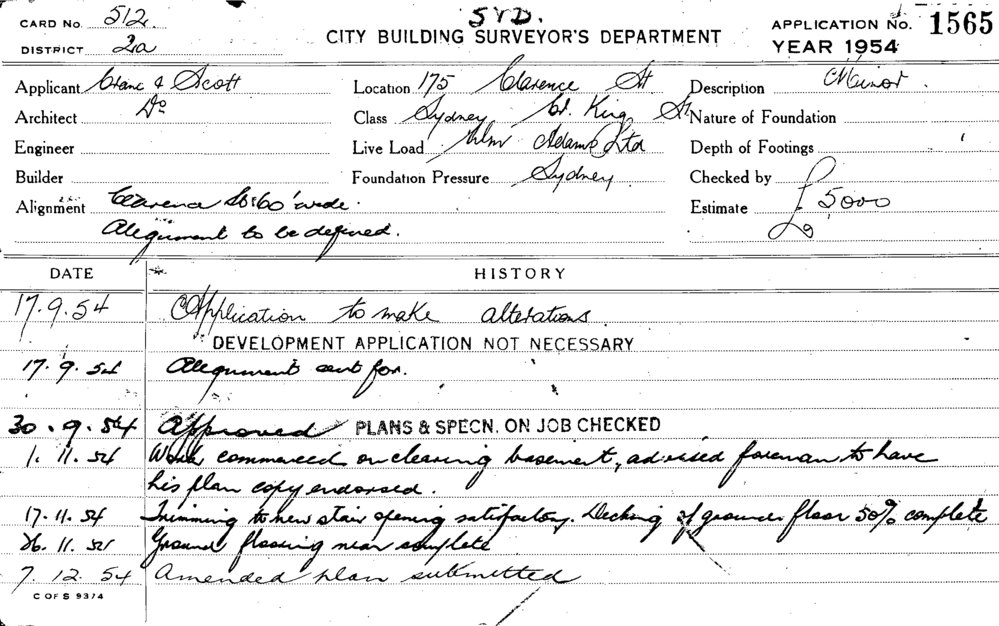 CARD No. 512.
SYD.
APPLICATION No. 1565
DISTRICT 2a
CITY BUILDING SURVEYOR'S DEPARTMENT
YEAR 1954
Applicant Crane & Scott
Location 175 Clarence St
Description Minor.
Architect Do
Class Sydney Cr. King St
Nature of Foundation
Engineer
Live Load Wm Adams Ltd
Depth of Footings
Builder
Foundation Pressure Sydney
Checked by
Alignment Clarence St 60' wide.
Estimate £5000
Alignment to be defined.
DATE HISTORY
17.9.54 Application to make alterations.
DEVELOPMENT APPLICATION NOT NECESSARY
17.9.54 Alignment sent for.
30.9.54 Approved PLANS & SPECN. ON JOB CHECKED
1.11.54 Work commenced on clearing basement, advised foreman to have
his plan copy endorsed.
17.11.54 Trimming to new stair opening satisfactory. Decking of ground floor 50% complete
26.11.54 Ground flooring near complete
7.12.54 Amended plan submitted
C OF S 93/4